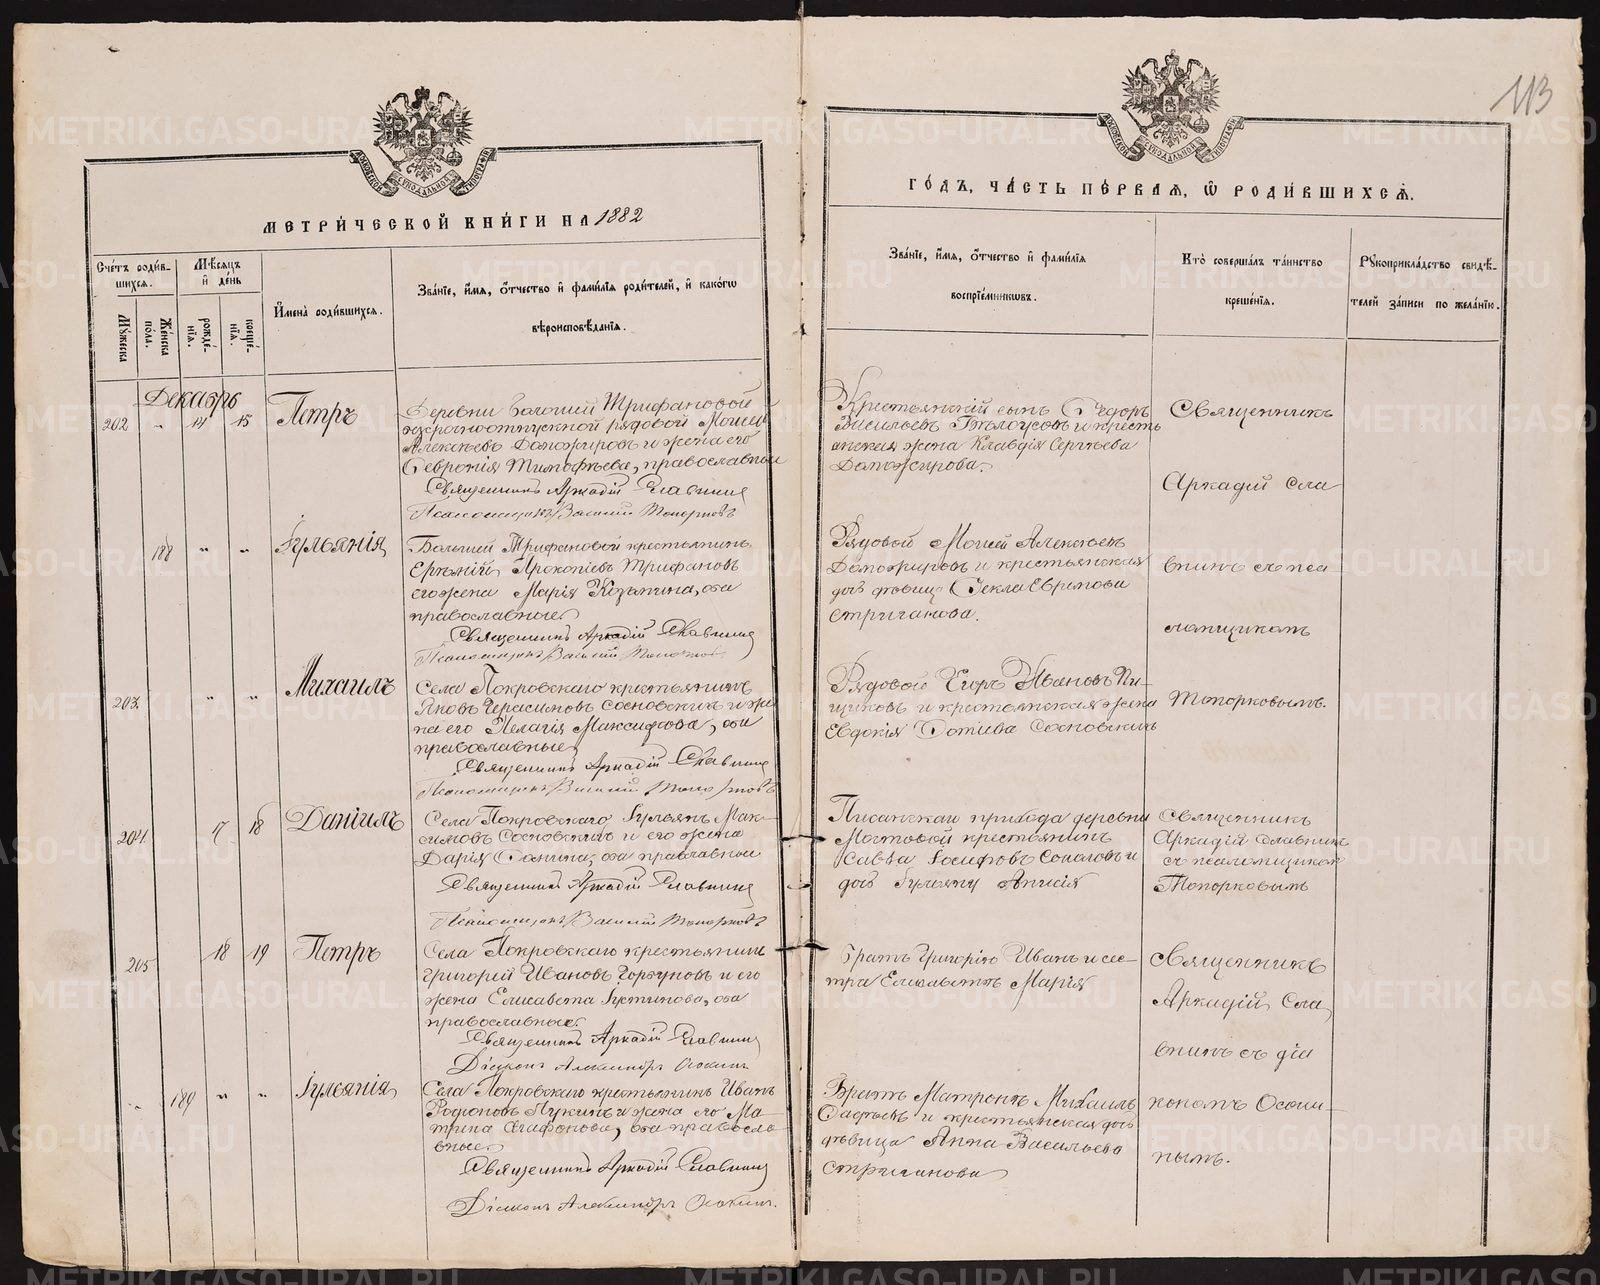 113
МОСКОВСКОЙ СѴНОДАЛЬНОЙ ТИПОГРАФІИ
МОСКОВСКОЙ СѴНОДАЛЬНОЙ ТИПОГРАФІИ
МЕТРИ́ЧЕСКОЙ КНИ́ГИ НА 1882
ГО́ДЪ, ЧА́СТЬ ПЕ́РВАЯ, Ѡ РОДИ́ВШИХСѦ.
Сче́тъ роди́в-
шихся.
Мѣ́сяцъ
и де́нь
Му́жеска
Же́нска
по́ла.
рожде́-
нїя.
креще́-
нїя.
Имена̀ роди́вшихся.
Зва́нїе, и́мя, о́тчество и фами́лїя роди́телей, и како́гѡ
вѣроисповѣ́данїя.
Зва́нїе, и́мя, о́тчество и фами́лїя
воспрїе́мникѡвъ.
Кто̀ соверша́лъ та́инство
креще́нїя.
Рукоприкла́дство свидѣ́-
телей за́писи по жела́нїю.
Декабрь
202 " 14 15 Петръ
Деревни Большой Трифановой
краткоотпускной рядовой Моисей
Алексѣевъ Доможировъ и жена его
Февронія Тимофѣева, православные
Священникъ Аркадій Славнинъ
Псаломщикъ Василій Топорковъ
Крестьянскій сынъ Ѳедоръ
Васильевъ Бѣлоусовъ и кресть
янская жена Клавдія Сергѣева
Доможирова.
Священникъ
Аркадій Сла
188 " " Іульянія
Большой Трифановой крестьянинъ
Прокопьевъ Трифановъ
его жена Марія Козьмина, оба
православные
Священникъ Аркадій Славнинъ
Псаломщикъ Василій Топорковъ
Рядовой Моисей Алексѣевъ
Доможировъ и крестьянская
дочь дѣвица Ѳекла Ефимова
Стриганова.
внинъ съ пса
ломщикомъ
203. " " Михаилъ
Села Покровскаго крестьянинъ
Яковъ Герасимовъ Сосновскихъ и же
на его Пелагія Максимова, оба
православные
Священникъ Аркадій Славнинъ
Псаломщикъ Василій Топорковъ
Рядовой Егоръ Ивановъ Пи-
щиковъ и крестьянская жена
Евдокія Фотиева Сосновскихъ
Топорковымъ.
204 17 18 Даніилъ
Села Покровскаго Іульянъ Мак-
симовъ Сосновскихъ и его жена
Дарія Фомина, оба православные
Священникъ Аркадій Славнинъ
Псаломщикъ Василій Топорковъ
Писанскаго прихода деревни
Мостовой крестьянинъ
Савва Іосифовъ Соколовъ и
дочь Іульяну Анисія
Священникъ
Аркадій Славнинъ
съ псаломщикомъ
Топорковымъ
205 18 19 Петръ
Села Покровскаго крестьянинъ
Григорій Ивановъ Горбуновъ и его
жена Елисавета Іустинова, оба
православные
Священникъ Аркадій Славнинъ
Діаконъ Александръ Осокинъ
Братъ Григорію Иванъ и сес-
тра Елисаветѣ Марія
Священникъ
Аркадій Сла
внинъ съ діа
" 189 " " Іульянія
Села Покровскаго крестьянинъ Иванъ
Родіоновъ Лукинъ и жена его Ма-
трена Агафонова, оба православ
ные
Священникъ Аркадій Славнинъ
Діаконъ Александръ Осокинъ.
Братъ Матроны Михаилъ
и крестьянская дочь
дѣвица Анна Васильева
Стриганова
кономъ Осоки-
нымъ.
METRIKI.GASO-URAL.RU